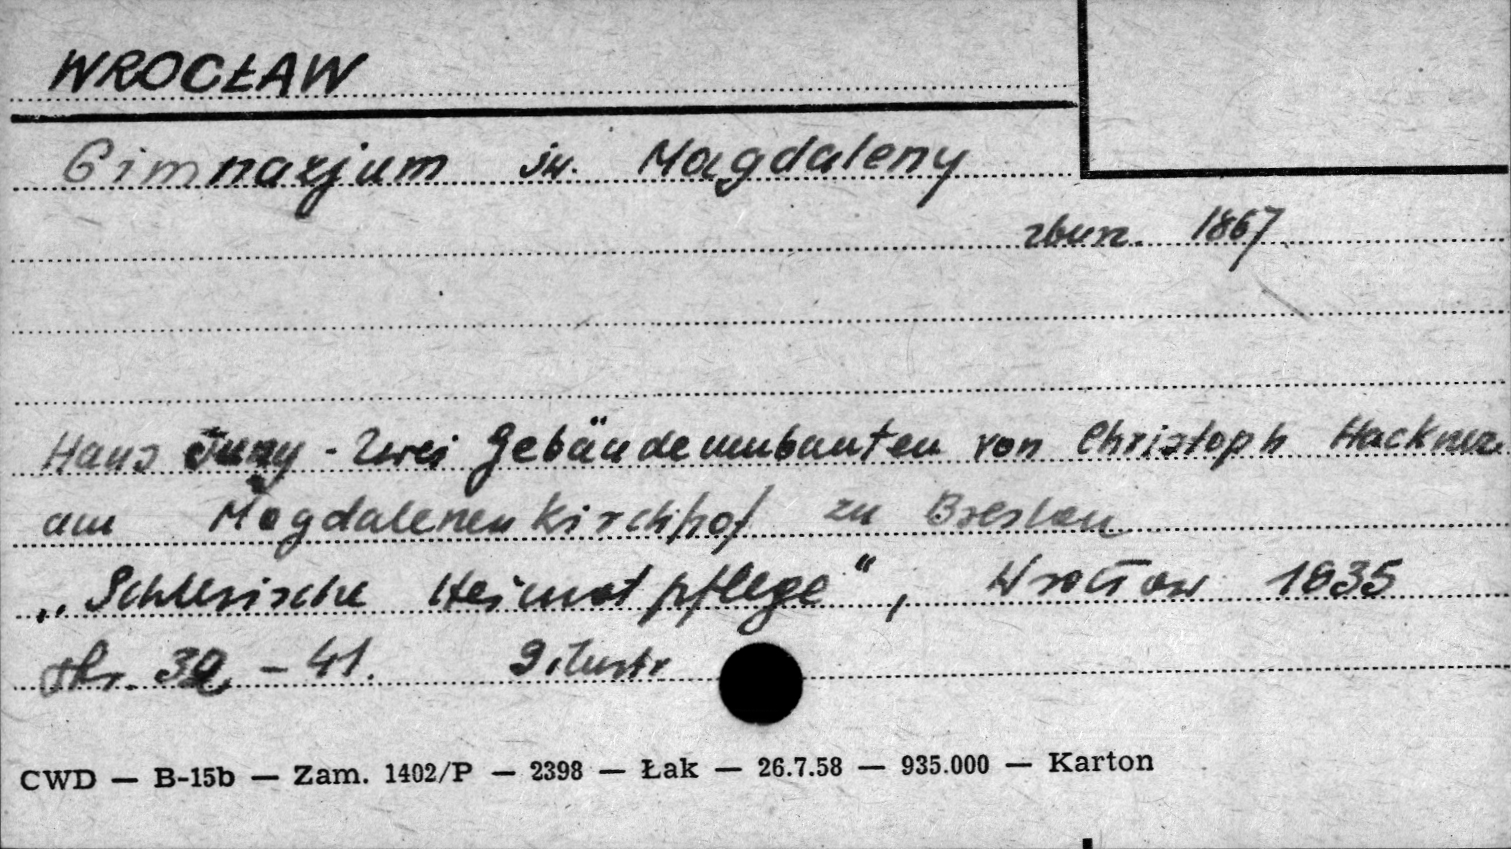 WROCŁAW
Gimnazjum św. Magdaleny
zburz. 1867
Hans Jung - Zwei Gebäudeumbauten von Christoph Hackner
am Magdalenenkirchhof zu Breslau
„Schlesische Heimatpflege", Wrocław 1935
str. 32 - 41. 9 ilustr
CWD — B-15b — Zam. 1402/P — 2398 — Łak — 26.7.58 — 935.000 — Karton